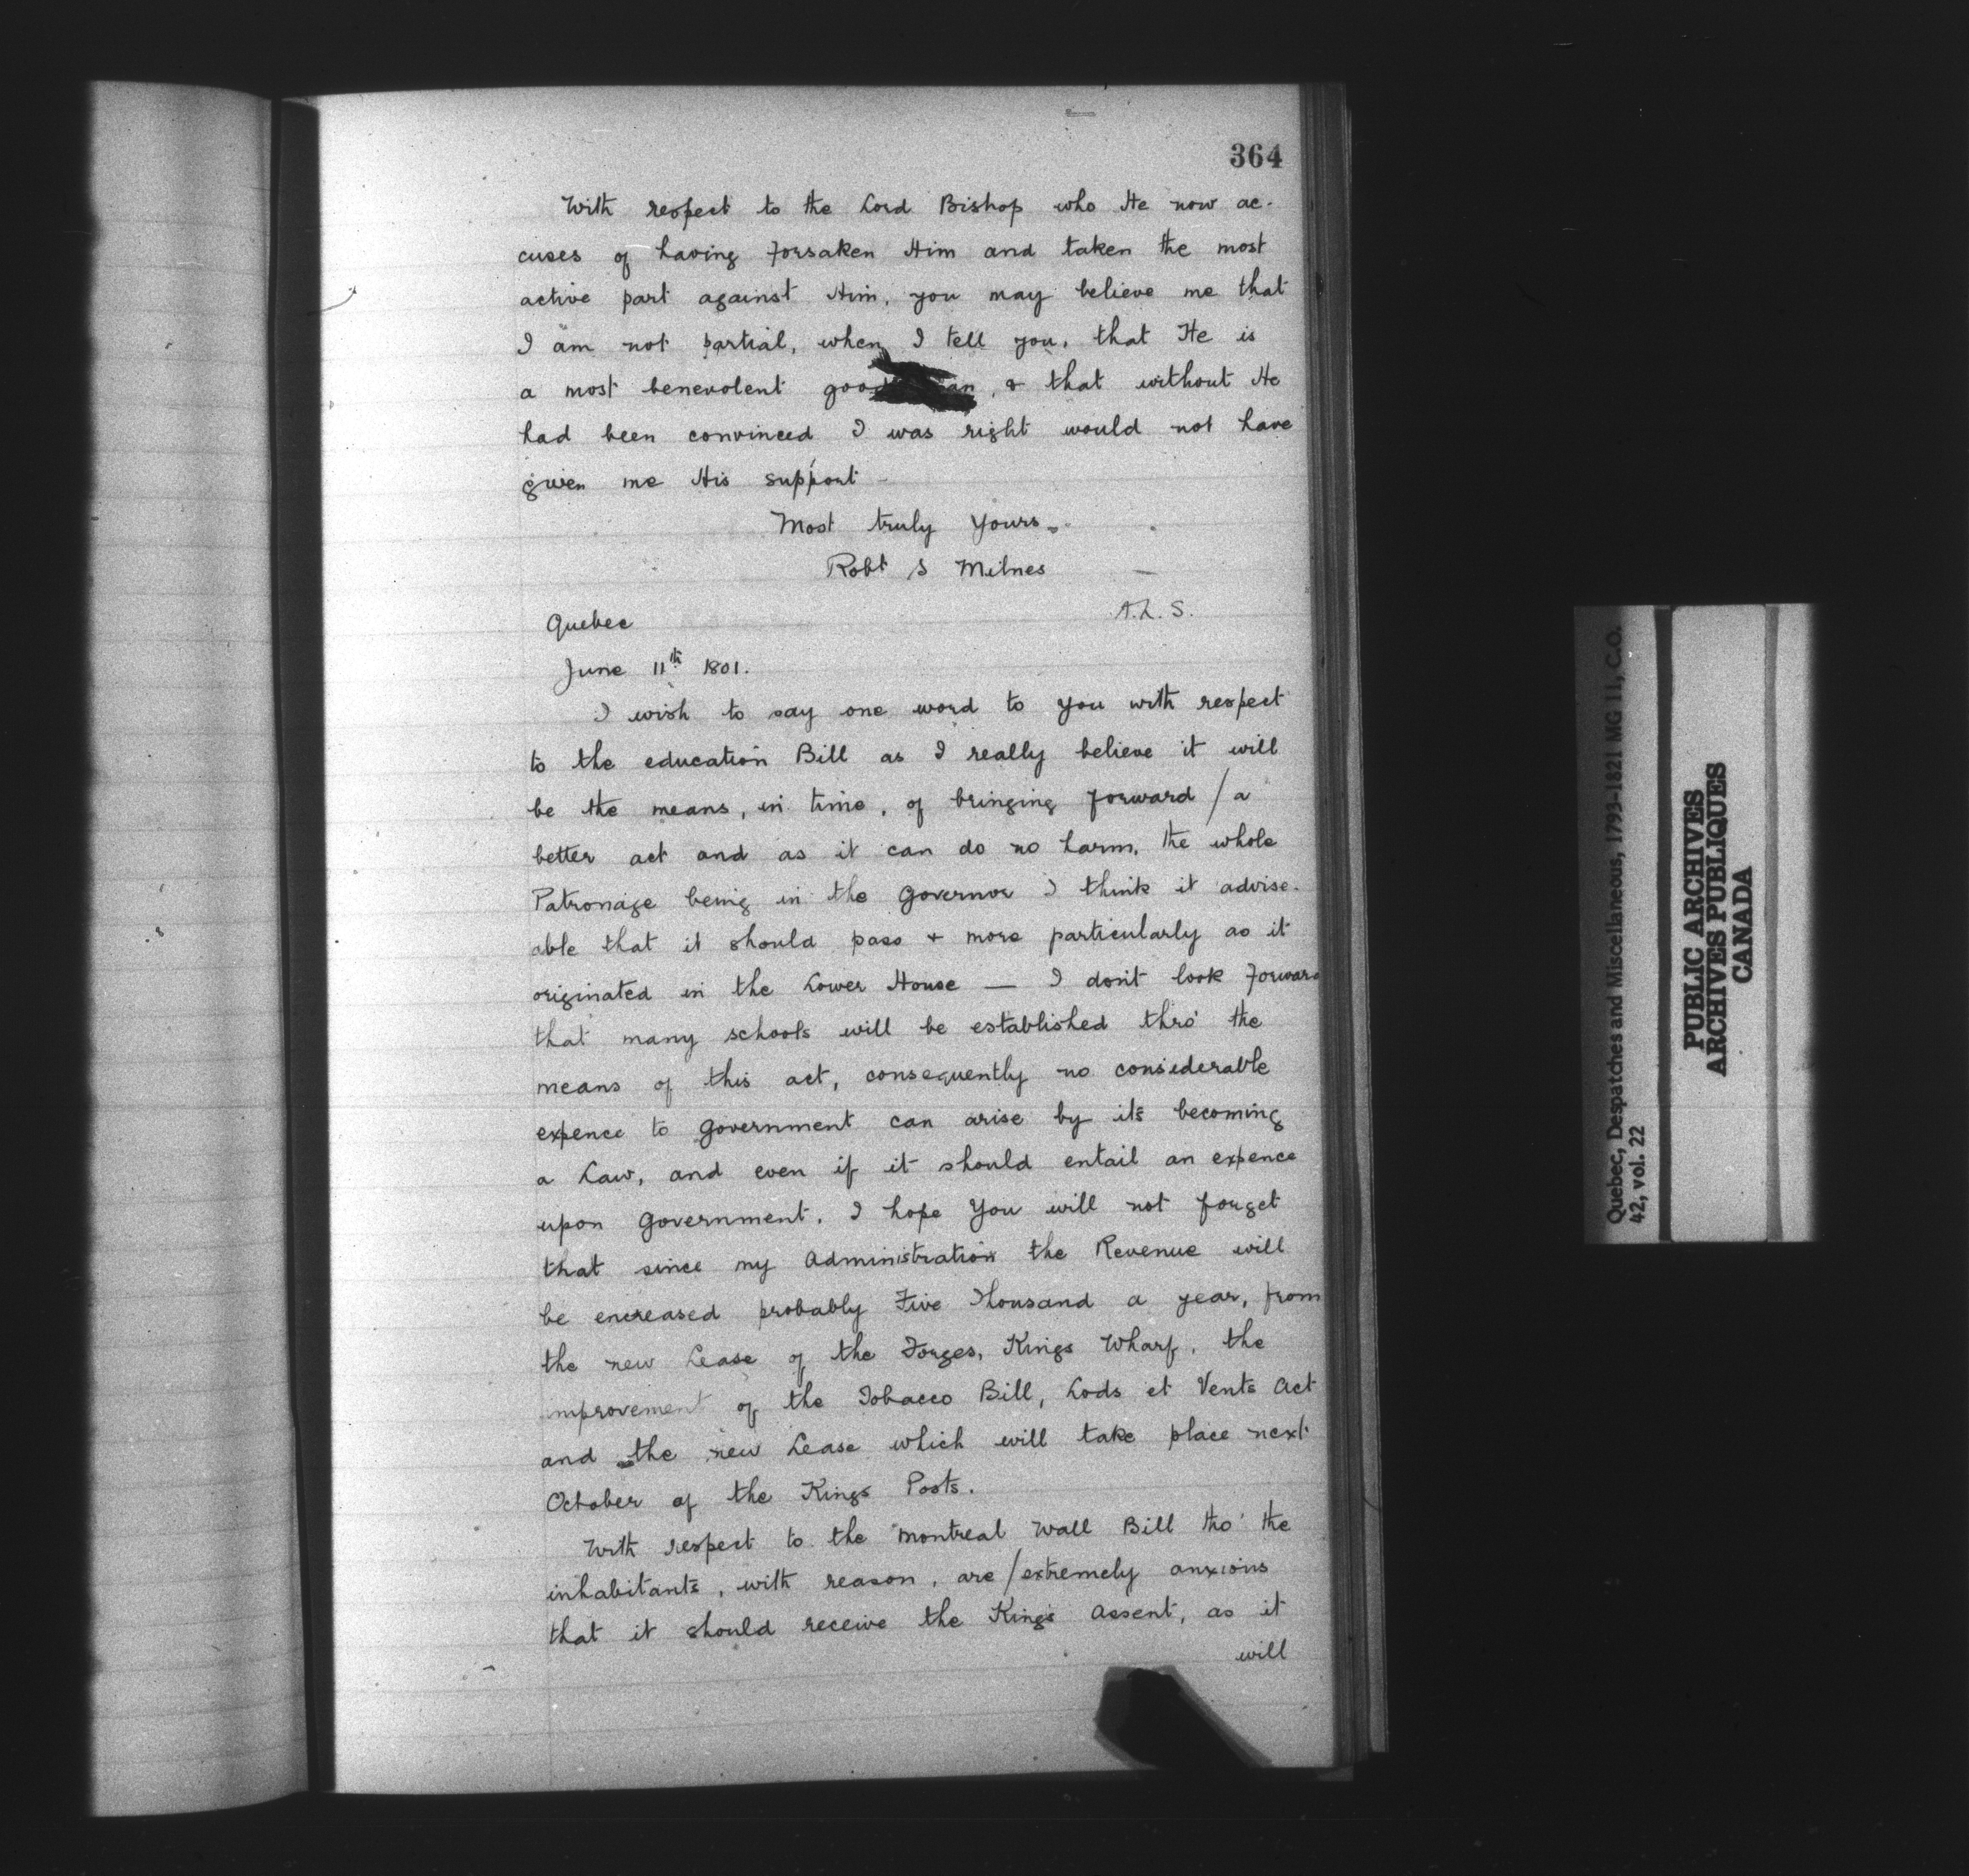 364
With respect to the Lord Bishop who He now ac-
cuses of having forsaken Him and taken the most
active part against Him, you may believe me that
I am not partial, when I tell you, that He is
a most benevolent good , & that without He
had been convinced I was right would not have
given me His support -
Most truly Yours
Robt S Milnes
A.L.S.
Quebec
June 11th 1801.
I wish to say one word to you with respect
to the education Bill as I really believe it will
be the means, in time, of bringing forward / a
better act and as it can do no harm, the whole
Patronage being in the Governor I think it advise-
able that it should pass + more particularly as it
originated in the Lower House — I don't look forward
that many schools will be established thro' the
means of this act, consequently no considerable
expence to Government can arise by its becoming
a Law, and even if it should entail an expence
upon Government, I hope You will not forget
that since my Administration the Revenue will
be encreased probably Five Thousand a year, from
the new Lease of the Forges, Kings Wharf, the
improvement of the Tobacco Bill, Lods et Vents Act
and the new Lease which will take place next
October of the Kings Posts.
With respect to the Montreal Wall Bill tho' the
inhabitants, with reason, are / extremely anxious
that it should receive the King's Assent, as it
will
Quebec, Despatches and Miscellaneous, 1793-1821 MG 11, C.O.
42, vol. 22
PUBLIC ARCHIVES
ARCHIVES PUBLIQUES
CANADA